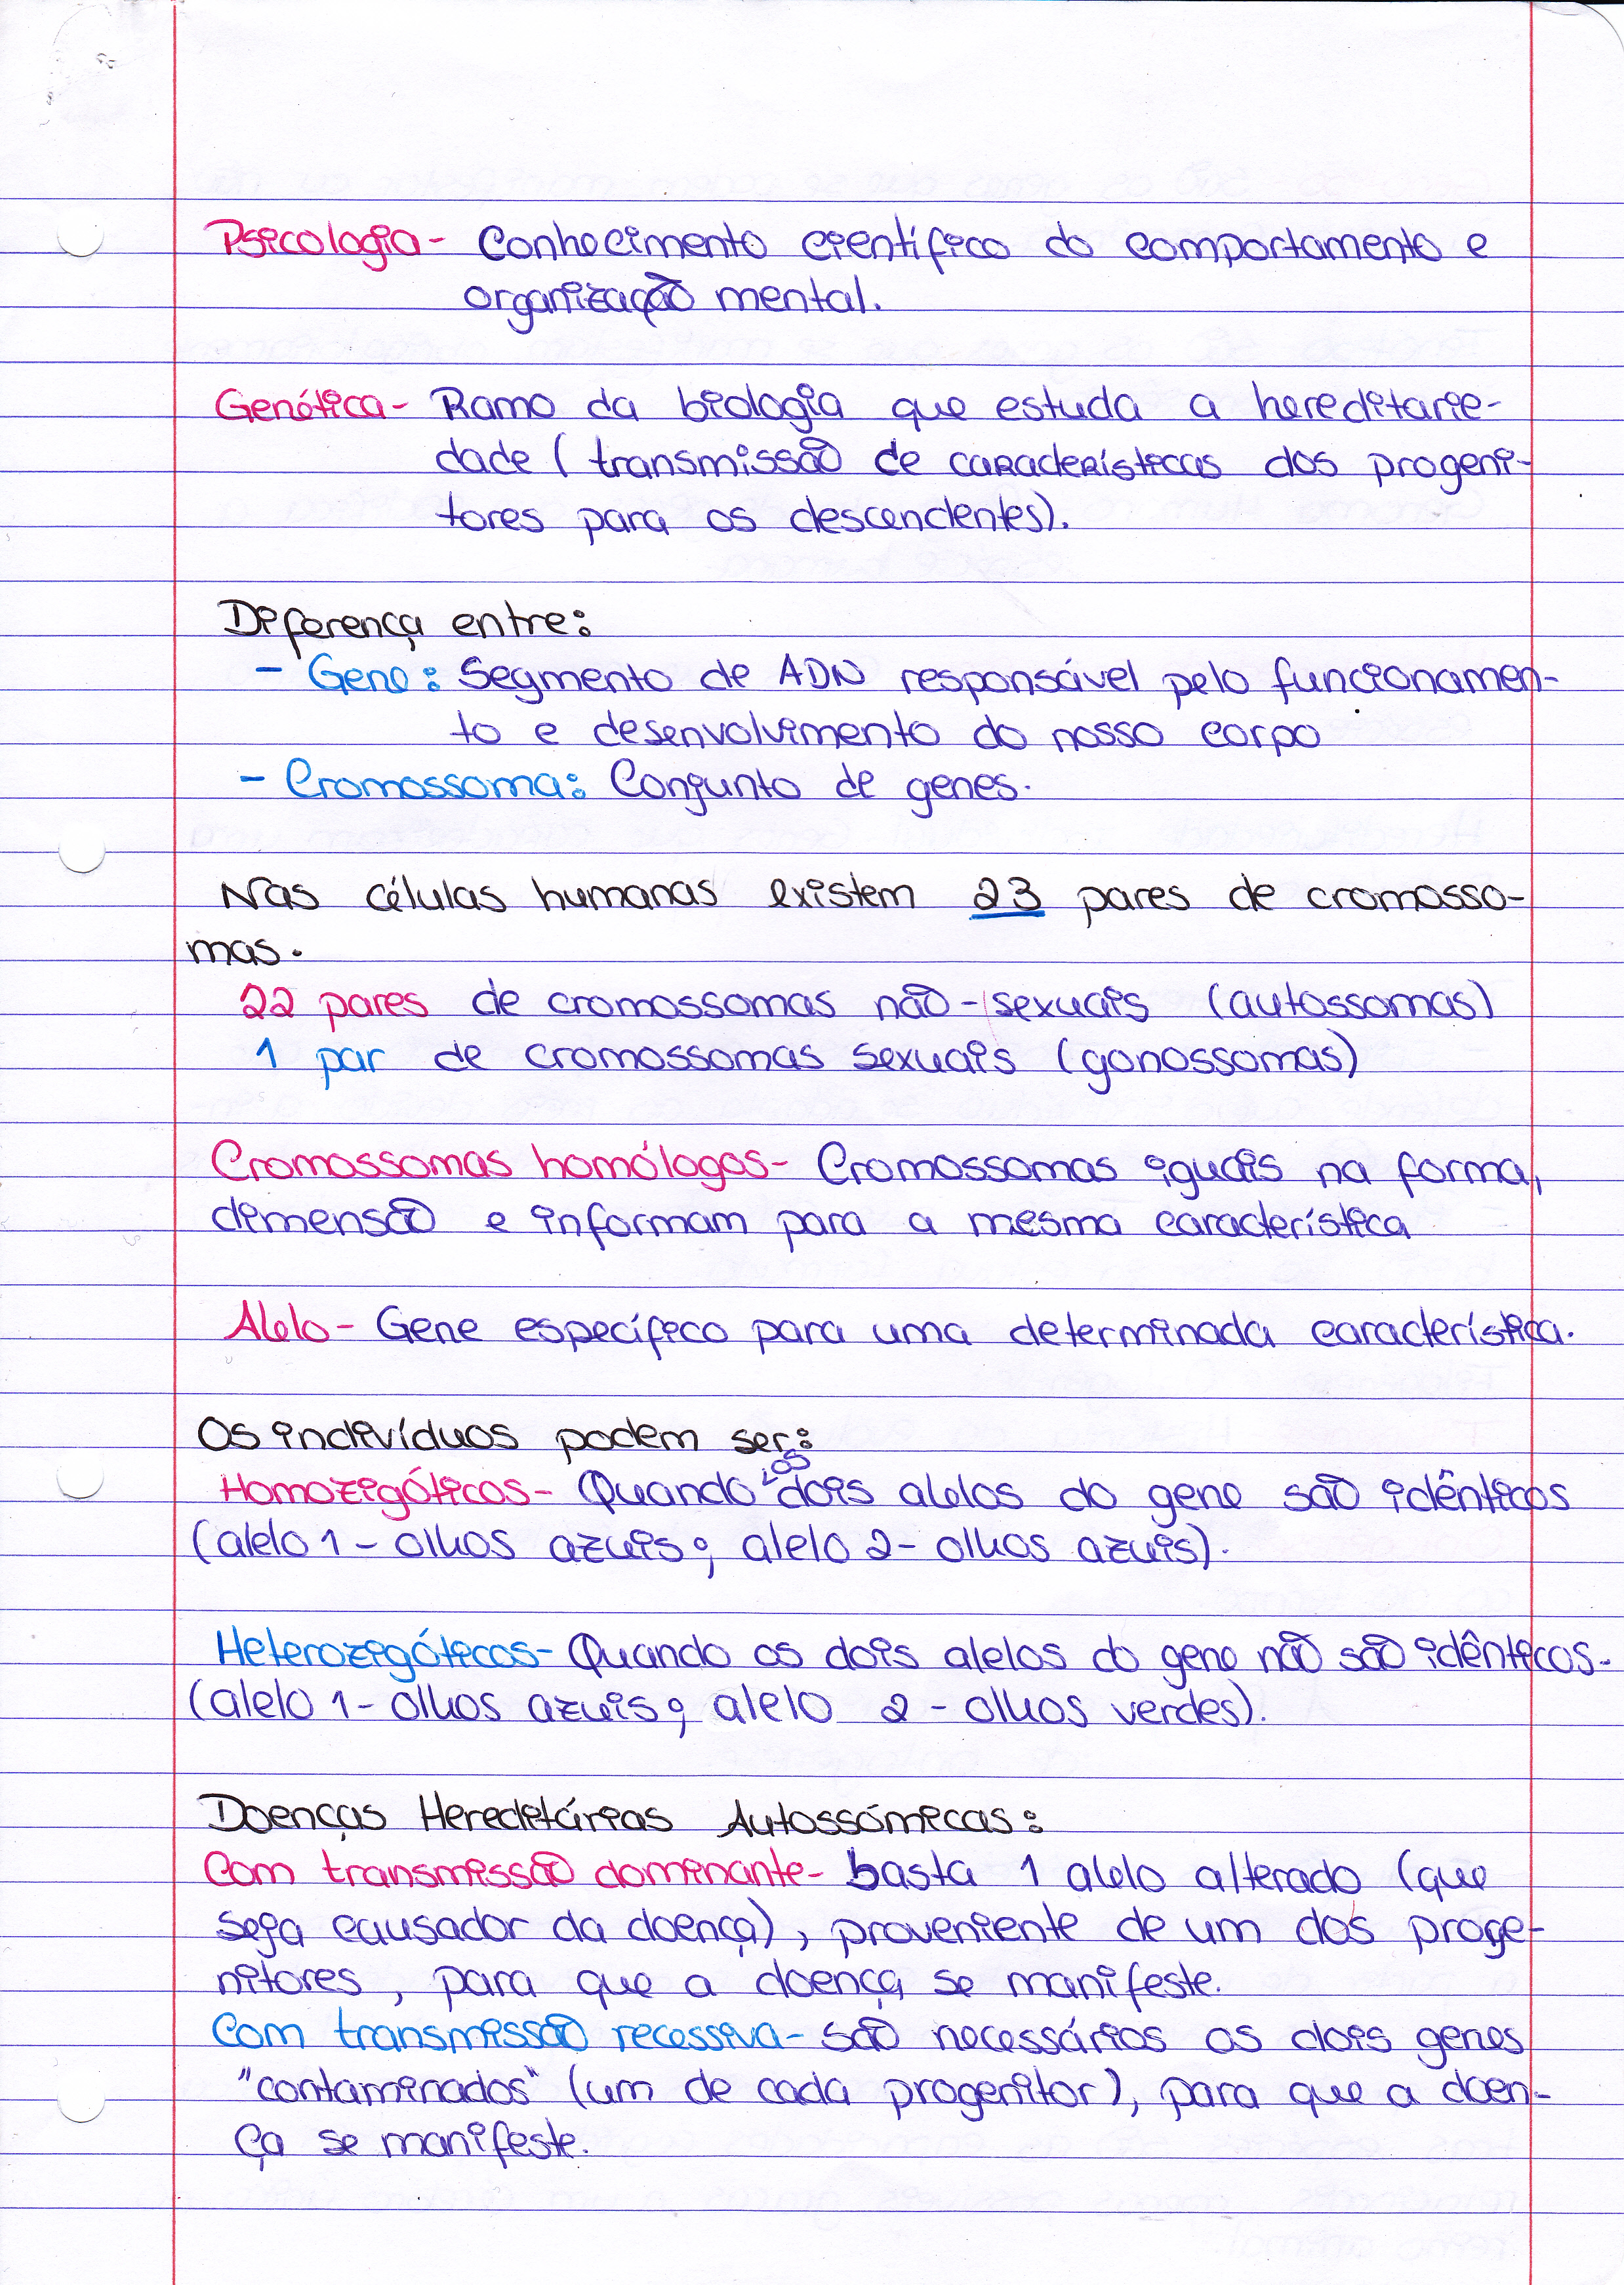 Psicologia- Conhecimento científico do comportamento e
organização mental.
Genética- Ramo da biologia que estuda a hereditarie-
dade (transmissão de características dos progeni-
tores para os descendentes).
Diferença entre:
- Gene: Segmento de ADN responsável pelo funcionamen-
to e desenvolvimento do nosso corpo
- Cromossoma: Conjunto de genes.
Nas células humanas existem 23 pares de cromosso-
mas.
22 pares de cromossomas não-sexuais (autossomas)
1 par de cromossomas sexuais (gonossomas)
Cromossomas homólogos- Cromossomas iguais na forma,
dimensão e informam para a mesma característica
Alelo- Gene específico para uma determinada característica.
Os indivíduos podem ser:
Homozigóticos- Quando os dois alelos do gene são idênticos
(alelo 1- olhos azuis; alelo 2- olhos azuis).
Heterozigóticos- Quando os dois alelos do gene não são idênticos-
(alelo 1- olhos azuis; alelo 2- olhos verdes).
Doenças Hereditárias Autossómicas:
Com transmissão dominante- basta 1 alelo alterado (que
seja causador da doença), proveniente de um dos proge-
nitores, para que a doença se manifeste.
Com transmissão recessiva- são necessários os dois genes
"contaminados" (um de cada progenitor), para que a doen-
ça se manifeste.